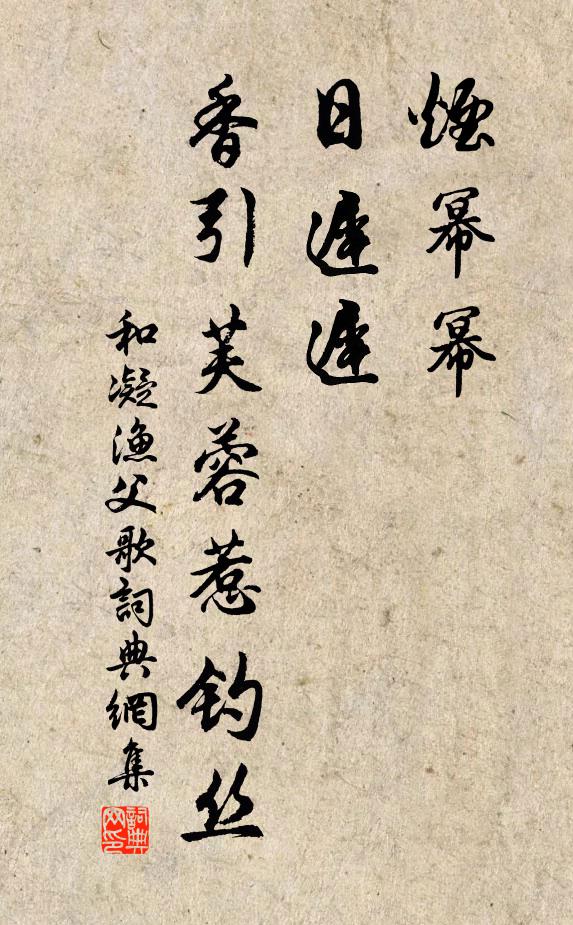 煙幂幂
日遲遲
香引芙蓉惹钓丝
和凝漁父歌詞典網集
詞典
网印